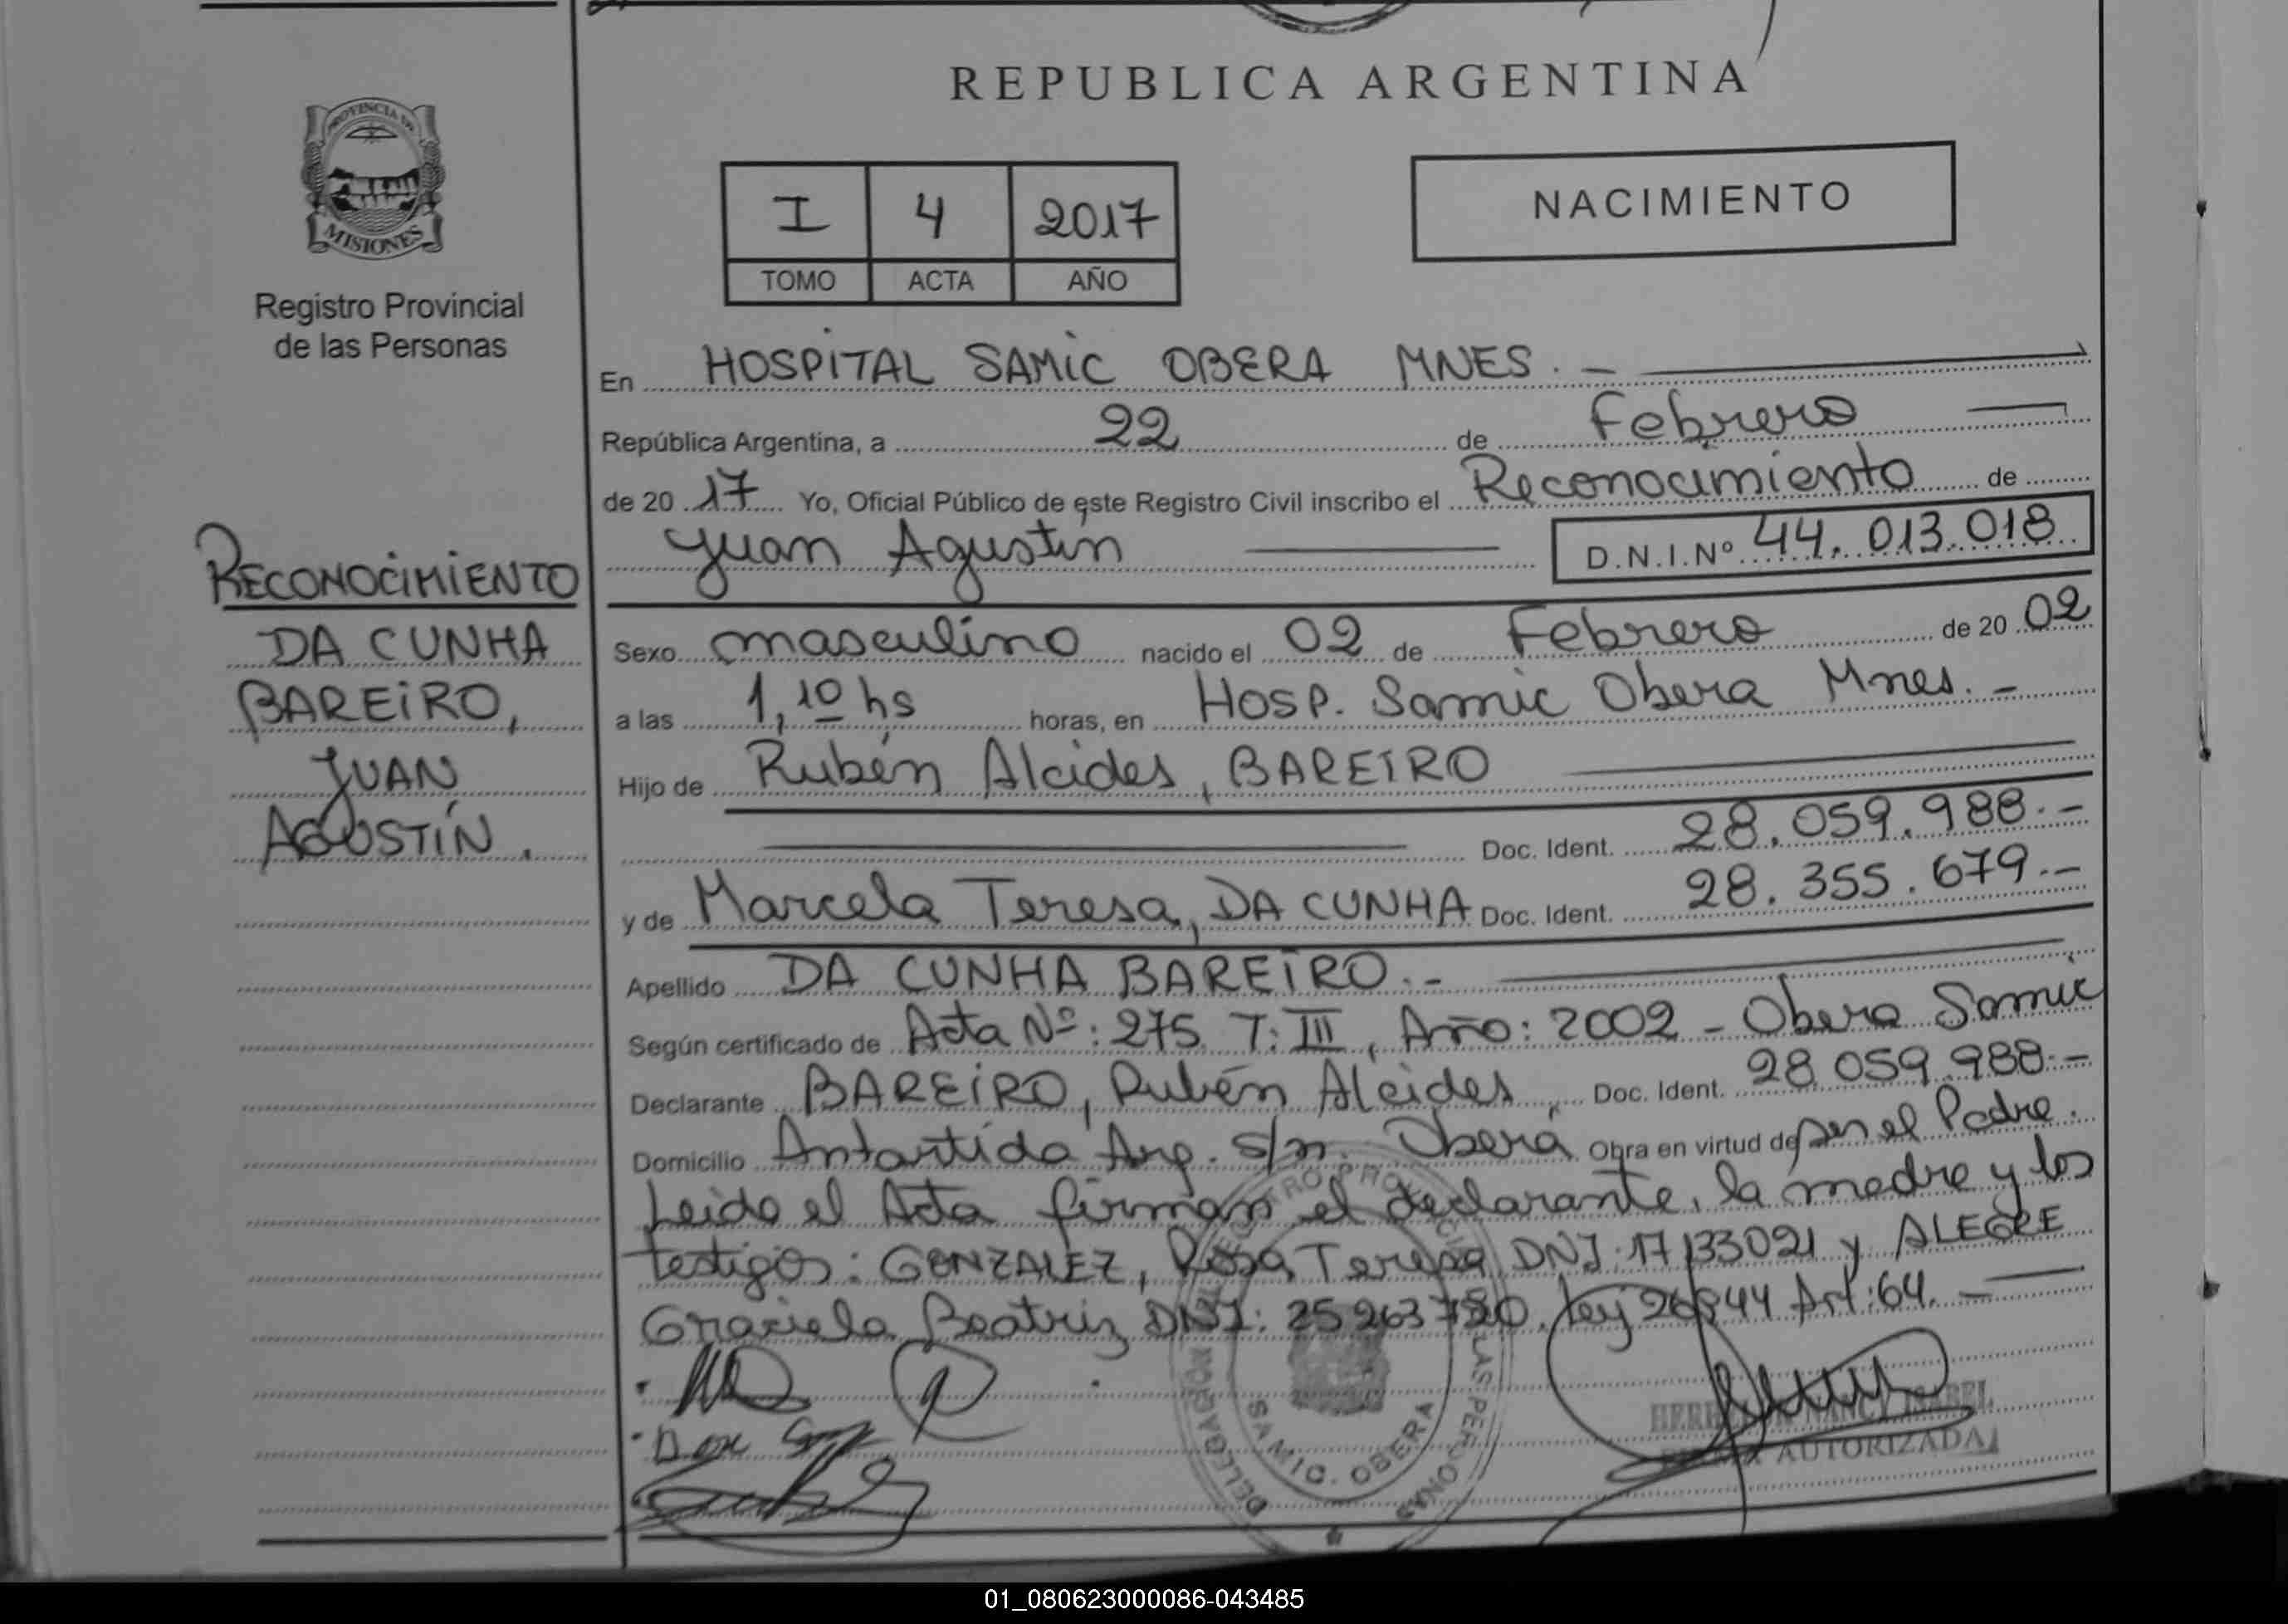 REPUBLICA ARGENTINA
PROVINCIA DE
MISIONES
Registro Provincial
de las Personas
I 4 2017
TOMO ACTA AÑO
NACIMIENTO
En HOSPITAL SAMIC OBERA MNES. -
República Argentina, a 22 de Febrero
de 20 17 Yo, Oficial Público de este Registro Civil inscribo el Reconocimiento de
Juan Agustin D.N.I.Nº 44.013.018
RECONOCIMIENTO
DA CUNHA
BAREIRO,
JUAN
AGUSTÍN.
Sexo masculino nacido el 02 de Febrero de 20 02
a las 1,10 hs horas, en Hosp. Samic Obera Mnes. -
Hijo de Rubén Alcides, BAREIRO
Doc. Ident. 28.059.988.-
y de Marcela Teresa, DA CUNHA Doc. Ident. 28.355.679.-
Apellido DA CUNHA BAREIRO.-
Según certificado de Acta Nº: 275 T: III, Año: 2002 - Obera Samic
Declarante BAREIRO, Rubén Alcides, Doc. Ident. 28 059.988.-
Domicilio Antartida Arg. s/n. Oberá Obra en virtud de ser el Padre.
Leido el Acta firman el declarante, la madre y los
testigos: GONZALEZ, Rosa Teresa DNI 17133021 y ALEGRE
Graciela Beatriz DNI: 25 263 780. Ley 26944 Art: 64. -
SAMIC. OBERA
DELEGACION
LAS PERSONAS
NANCY ISABEL
AUTORIZADA
01_080623000086-043485